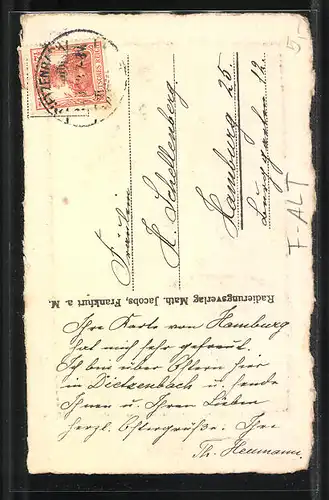 Fräulein
K. Schellenberg.
Hamburg 25.
19
Radierungsverlag Math. Jacobs, Frankfurt a. M.
Ihre Karte von Hamburg
hat mich sehr gefreut.
Ich bin über Ostern hier
in Dietzenbach u. sende
Ihnen u. Ihren Lieben
herzl. Ostergrüße. Ihre
Th. Heumann.
5-
F-ALT